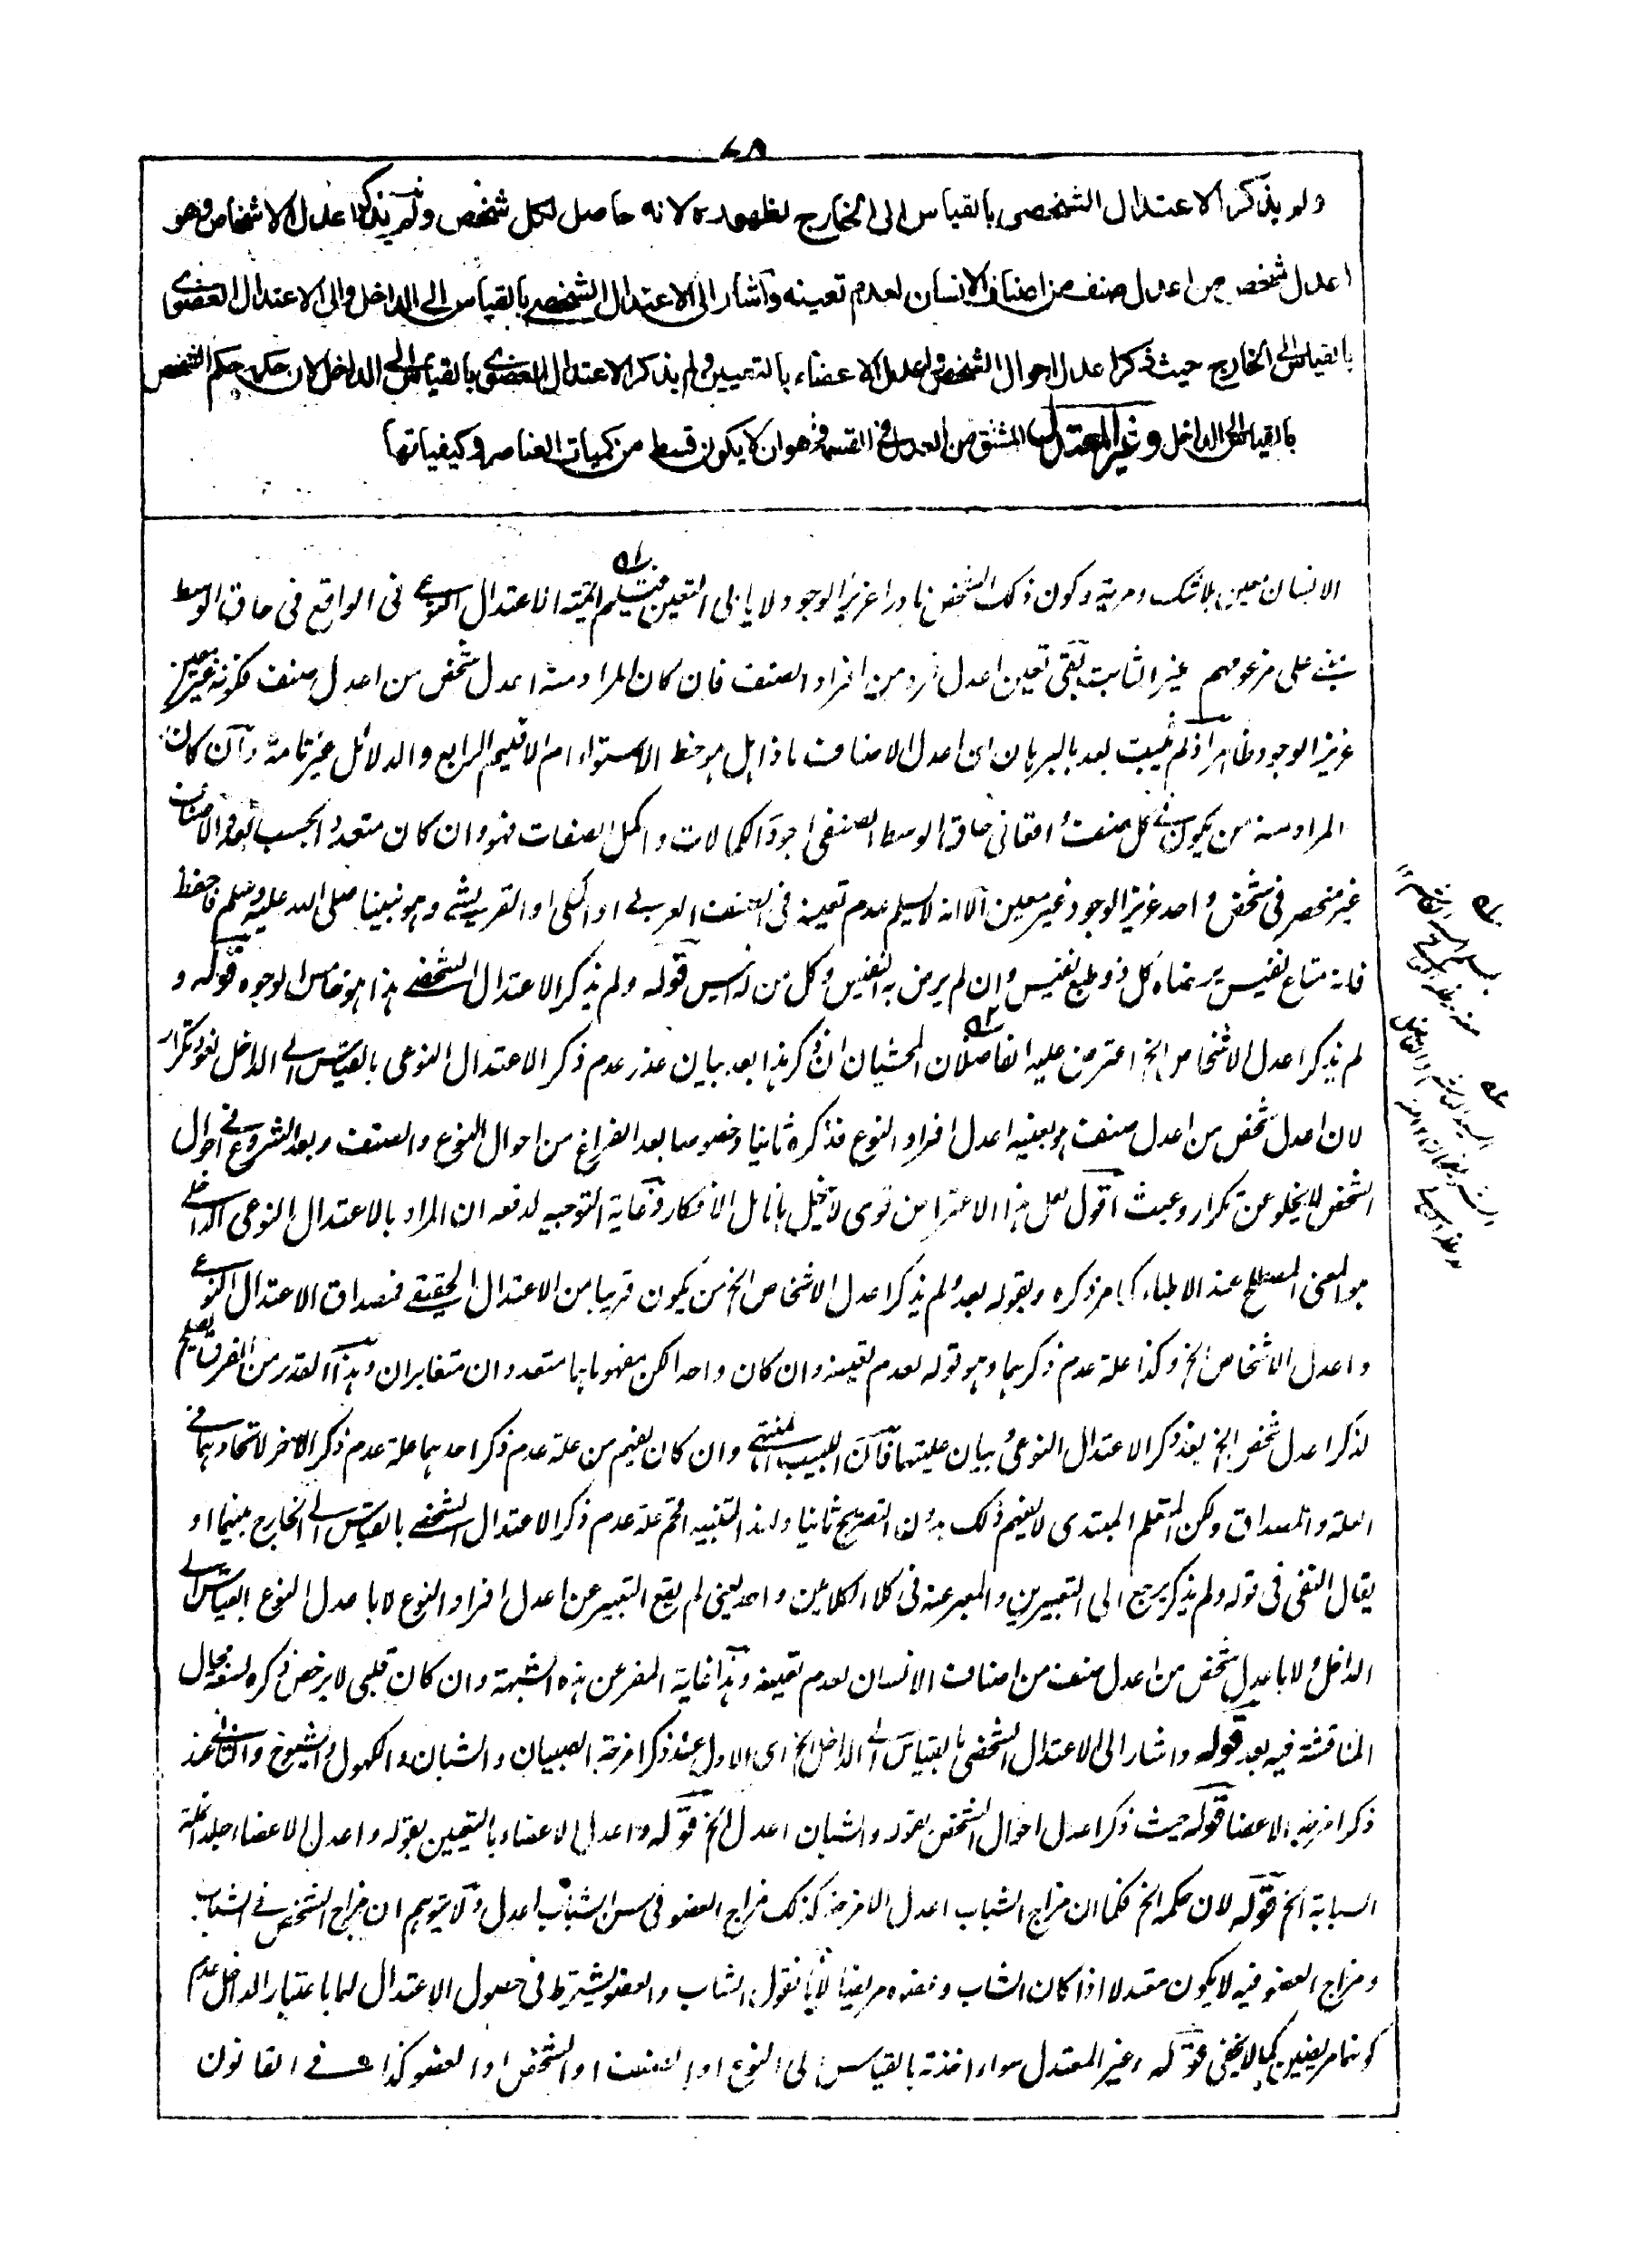 ٤٨
ولم يذكر الاعتدال الشخصى بالقياس الى الخارج لظهوره لانه حاصل لكل شخص ولم يذكر اعدل الاشخاص وهو
اعدل شخص من اعدل صنف من اصناف الانسان لعدم تعينه وآشار الى الاعتدال الشخصے بالقياس الى الداخل والى الاعتدال العضوى
بالقياس الى الخارج حيث ذكر اعدل احوال الشخص واعدل الاعضاء بالتعيين ولم يذكر الاعتدال العضوى بالقياس الى الداخل لان حكمه حكم الشخص
بالقياس الى الداخل وغير المعتدل المشتق من العدل فى القسمة فهو ان لا يكون قسط من كميات العناصر وكيفياتها
الانسان معين بلا شك ومرية وكون ذلك الشخص نادرا عزيز الوجود لا يابى التعين فتسليم الاعتدال النوعے فى الواقع فى حاق الوسط
يبتنے على مزعومهم غير الثابت بقى تعين اعدل فرد من افراد الصنف فان كان المراد منه اعدل شخص من اعدل صنف فكونه غير معين
عزيز الوجود ظاهر اذ لم يثبت بعد بالبرهان اى اعدل الاصناف ماذا هل هو خط الاستواء ام الاقليم الرابع والدلائل غير تامة وآن كان
المراد منه من يكون فے كل صنف واقعا فى حاق الوسط الصنفى اجود الكمالات واكمل الصفات فهو وان كان متعددا بحسب تعدد الاصناف
غير منحصر فى شخص واحد عزيز الوجود غير معين الا انه لا يسلم عدم تعينه فى الصنف العربے او المكى او القريشے وهو نبينا صلى الله عليه وسلم فاحفظ
فانه متاع نفيس يرضاه كل ذو طبع نفيس وان لم يرض به النفيس وكل من له سيس قوله ولم يذكر الاعتدال الشخصے هذا هو خامس الوجوه قوله و
لم يذكر اعدل الاشخاص الخ اعترض عليه الفاضلان المحشيان ان ذكر هذا بعد بيان عذر عدم ذكر الاعتدال النوعى بالقياس الے الداخل لغو وتكرار
لان اعدل شخص من اعدل صنف هو بعينه اعدل افراد النوع فذكره ثانيا وخصوصا بعد الفراغ من احوال النوع والصنف وبعد الشروع فے احوال
الشخص لا يخلو عن تكرار وعبث آقول لعل هذا الاعتراض قوى لا ينحل بانامل الافكار وغاية التوجيه لدفعه ان المراد بالاعتدال النوعى الداخلے
هو المعنى المصطلح عند الاطباء كما مر ذكره وبقوله بعد ولم يذكر اعدل الاشخاص الخ من يكون قريبا من الاعتدال الحقيقے فمصداق الاعتدال النوعے
واعدل الاشخاص الخ وكذا علة عدم ذكرهما وهو قوله لعدم تعينه وان كان واحدا لكن مفهوماهما متعددان متغايران وهذا القدر من الفرق يصلح
لذكر اعدل شخص الخ بعد ذكر الاعتدال النوعى وبيان عليتهما فان اللبيب المنتهے وان كان يفهم من علة عدم ذكر احدهما علة عدم ذكر الآخر لاتحادهما فے
العلة والمصداق ولكن المتعلم المبتدى لا يفهم ذلك بدون التصريح ثانيا ولهذا التنبيه اقحم علة عدم ذكر الاعتدال الشخصے بالقياس الے الخارج بينهما او
يقال النفى فى قوله ولم يذكر يرجع الى التعبيرين والمعبر عنه فى كلا الكلامين واحد يعنى لم يقع التعبير عن اعدل افراد النوع لا باعدل النوع بالقياس الے
الداخل ولا باعدل شخص من اعدل صنف من اصناف الانسان لعدم تعينه وهذا غاية المفر عن هذه الشبهة وان كان قلبى لا يرخص ذكره لسعة مجال
المناقشة فيه بعد قوله واشار الى الاعتدال الشخصى بالقياس الے الداخل الخ اى الاول عند ذكر امزجة الصبيان والشبان والكهول والشيوخ والثانى عند
ذكر امزجة الاعضا قوله حيث ذكر اعدل احوال الشخص بقوله والشبان اعدل الخ قوله واعدل الاعضاء بالتعيين بقوله واعدل الاعضاء جلد انملة
السبابة الخ قوله لان حكمه الخ فكما ان مزاج الشباب اعدل الامزجة كذلك مزاج العضو فى سن الشباب اعدل ولا يتوهم ان مزاج الشخص فے الشباب
ومزاج العضو فيه لا يكون معتدلا اذا كان الشاب وعضوه مريضا لانا نقول الشاب والعضو يشترط فى حصول الاعتدال لهما باعتبار الداخل عدم
كونهما مريضين كما لا يخفى قوله وغير المعتدل سواء اخذته بالقياس الى النوع او الصنف او الشخص او العضو كذا فے القانون